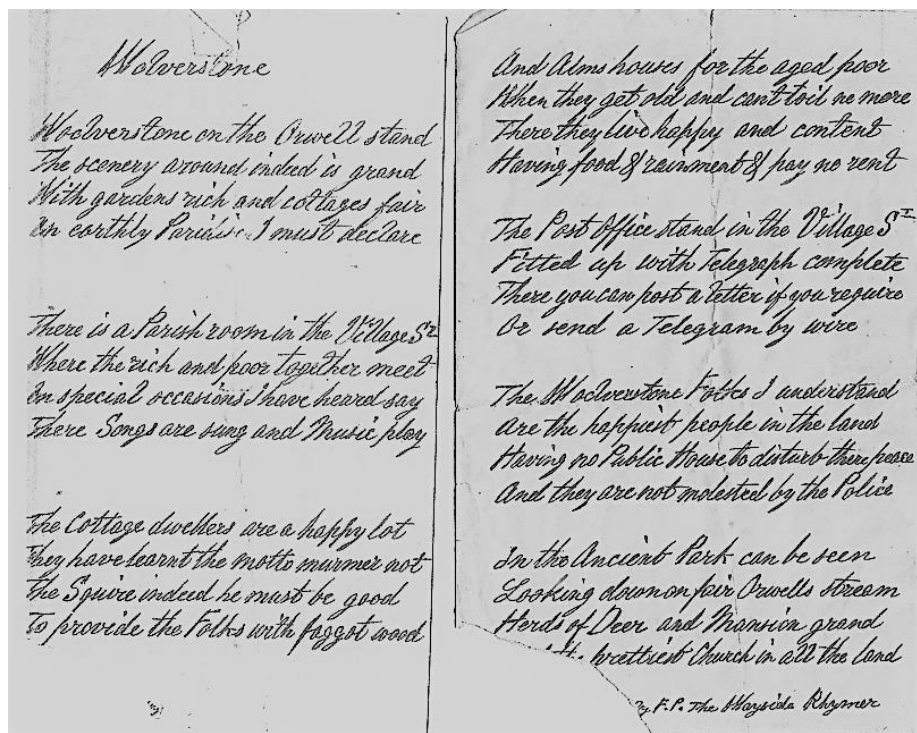 Wolverstone
Woolverstone on the Orwell stand
The scenery around indeed is grand
With gardens rich and cottages fair
An earthly Paridise I must declare
There is a Parish room in the Village St
Where the rich and poor together meet
On special occasions I have heard say
There Songs are sung and Music play
The Cottage dwellers are a happy lot
They have learnt the motto murmer not
The Squire indeed he must be good
To provide the Folks with faggot wood
And Alms houses for the aged poor
When they get old and cant toil no more
There they live happy and content
Having food & rainment & pay no rent
The Post Office stand in the Village St
Fitted up with Telegraph complete
There you can post a letter if you require
Or send a Telegram by wire
The Woolverstone Folks I understand
Are the happiest people in the land
Having no Public House to disturb there peace
And they are not molested by the Police
In the Ancient Park can be seen
Looking down on fair Orwells stream
Herds of Deer and Mansion grand
prettiest Church in all the land
By F.P. The Wayside Rhymer